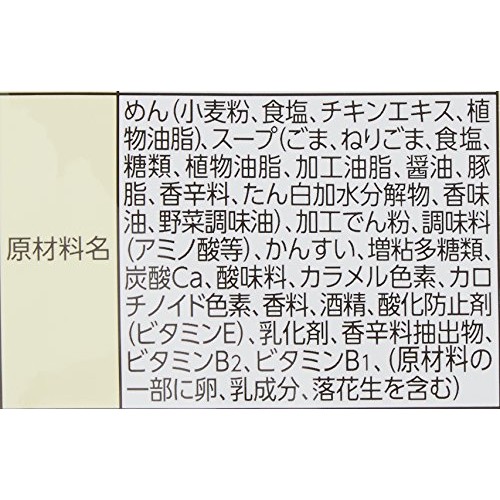 原材料名
めん（小麦粉、食塩、チキンエキス、植
物油脂）、スープ（ごま、ねりごま、食塩、
糖類、植物油脂、加工油脂、醤油、豚
脂、香辛料、たん白加水分解物、香味
油、野菜調味油）、加工でん粉、調味料
（アミノ酸等）、かんすい、増粘多糖類、
炭酸Ca、酸味料、カラメル色素、カロ
チノイド色素、香料、酒精、酸化防止剤
（ビタミンE）、乳化剤、香辛料抽出物、
ビタミンB2、ビタミンB1、（原材料の
一部に卵、乳成分、落花生を含む）